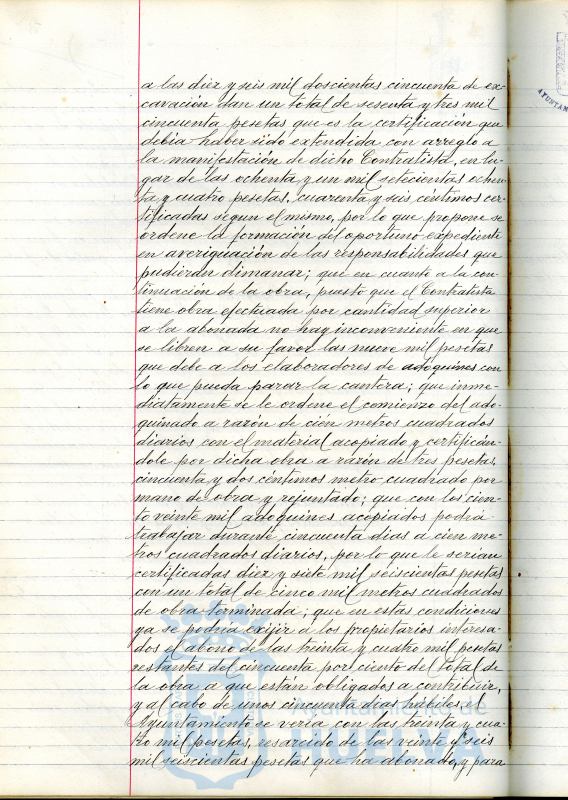 a las diez y seis mil doscientas cincuenta de ex-
cavación dan un total de sesenta y tres mil
cincuenta pesetas que es la certificación que
debía haber sido extendida con arreglo a
la manifestación de dicho Contratista, en lu-
gar de las ochenta y un mil setecientas ochen-
ta y cuatro pesetas, cuarenta y seis céntimos cer-
tificadas segun el mismo, por lo que propone se
ordene la formación del oportuno expediente
en averiguación de las responsabilidades que
pudieran dimanar; que en cuanto a la con-
tinuación de la obra, puesto que el Contratista
tiene obra efectuada por cantidad superior
a la abonada no hay inconveniente en que
se libren a su favor las nueve mil pesetas
que debe a los elaboradores de adoquines con
lo que pueda parar la cantera; que inme-
diatamente se le ordene el comienzo del ado-
quinado a razón de cien metros cuadrados
diarios con el material acopiado y certificán-
dole por dicha obra a razón de tres pesetas,
cincuenta y dos céntimos metro cuadrado por
mano de obra y rejuntado; que con los cien-
to veinte mil adoquines acopiados podrá
trabajar durante cincuenta dias a cien me-
tros cuadrados diarios, por lo que le serían
certificadas diez y siete mil seiscientas pesetas
con un total de cinco mil metros cuadrados
de obra terminada; que en estas condiciones
ya se podría exijir a los propietarios interesa-
dos el abono de las treinta y cuatro mil pesetas
restantes del cincuenta por ciento del total de
la obra a que están obligados a contribuir,
y al cabo de unos cincuenta dias hábiles, el
Ayuntamiento se vería con las treinta y cua-
tro mil pesetas, resarcido de las veinte y seis
mil seiscientas pesetas que ha abonado, y para
Ayuntamiento de
HUELVA